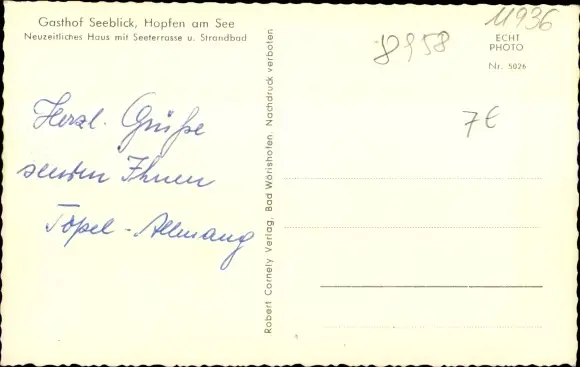 Gasthof Seeblick, Hopfen am See
Neuzeitliches Haus mit Seeterrasse u. Strandbad
11936
8958
ECHT
PHOTO
Nr. 5026
7€
Herzl. Grüße
senden Ihnen
Töpel - Allmang
Robert Cornely Verlag, Bad Wörishofen. Nachdruck verboten